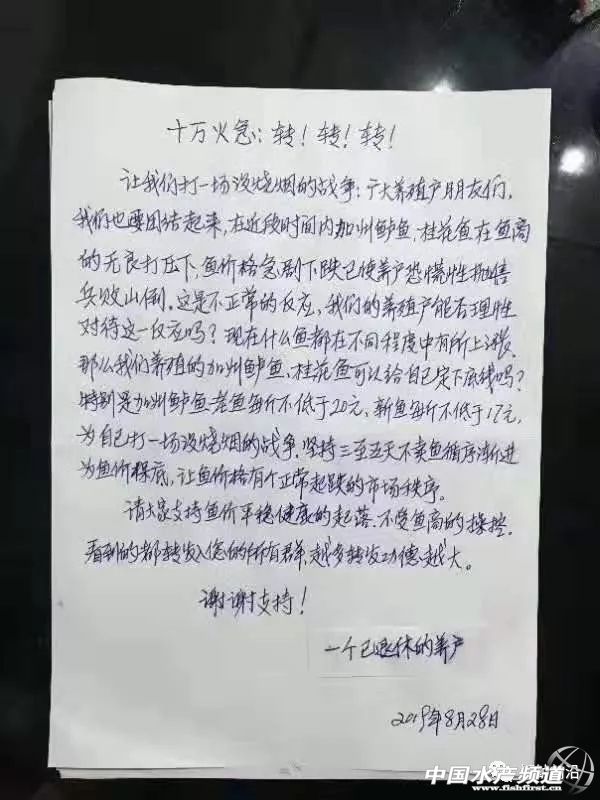 十万火急：转！转！转！
让我们打一场没烧烟的战争：广大养殖户朋友们，
我们也要团结起来，在近段时间内加州鲈鱼，桂花鱼在鱼商
的无良打压下，鱼价格急剧下跌已使养户恐慌性抛售
兵败山倒。这是不正常的反应、我们的养殖户能否理性
对待这一反应吗？现在什么鱼都在不同程度中有所上涨、
那么我们养殖的加州鲈鱼、桂花鱼可以给自己定下底线吗？
特别是加州鲈鱼老鱼每斤不低于20元、新鱼每斤不低于17元，
为自己打一场没烧烟的战争、坚持三至五天不卖鱼循序渐进
为鱼价探底，让鱼价格有个正常起跌的市场秩序。
请大家支持鱼价平稳健康的起落、不受鱼商的操控。
看到的都转发入您的所有群、越多转发功德越大。
谢谢支持！
一个已退休的养户
2019年8月28日
中国水产频道
www.fishfirst.cn